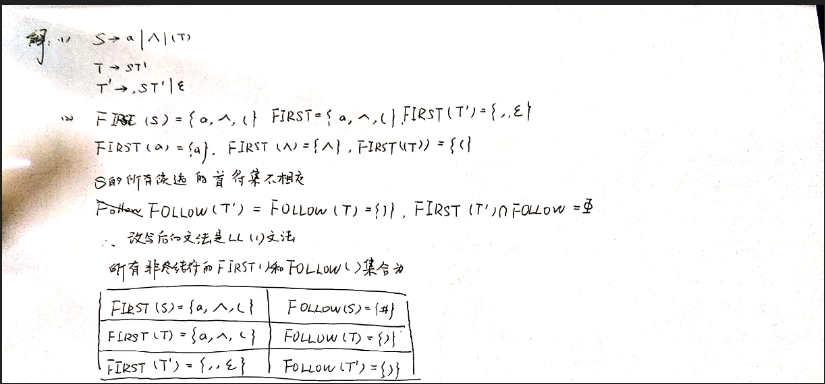 解: (1) S→a|∧|(T)
T→ST'
T'→,ST'|ε
(2) FIRST(S)={a,∧,(} FIRST={a,∧,(} FIRST(T')={,,ε}
FIRST(a)={a}, FIRST(∧)={∧}, FIRST((T))={(}
S的所有候选的首符集不相交
FOLLOW(T')=FOLLOW(T)={)}, FIRST(T')∩FOLLOW=Φ
∴ 改写后的文法是LL(1)文法
所有非终结符的FIRST()和FOLLOW()集合为
FIRST(S)={a,∧,(} FOLLOW(S)={#}
FIRST(T)={a,∧,(} FOLLOW(T)={)}
FIRST(T')={,,ε} FOLLOW(T')={)}